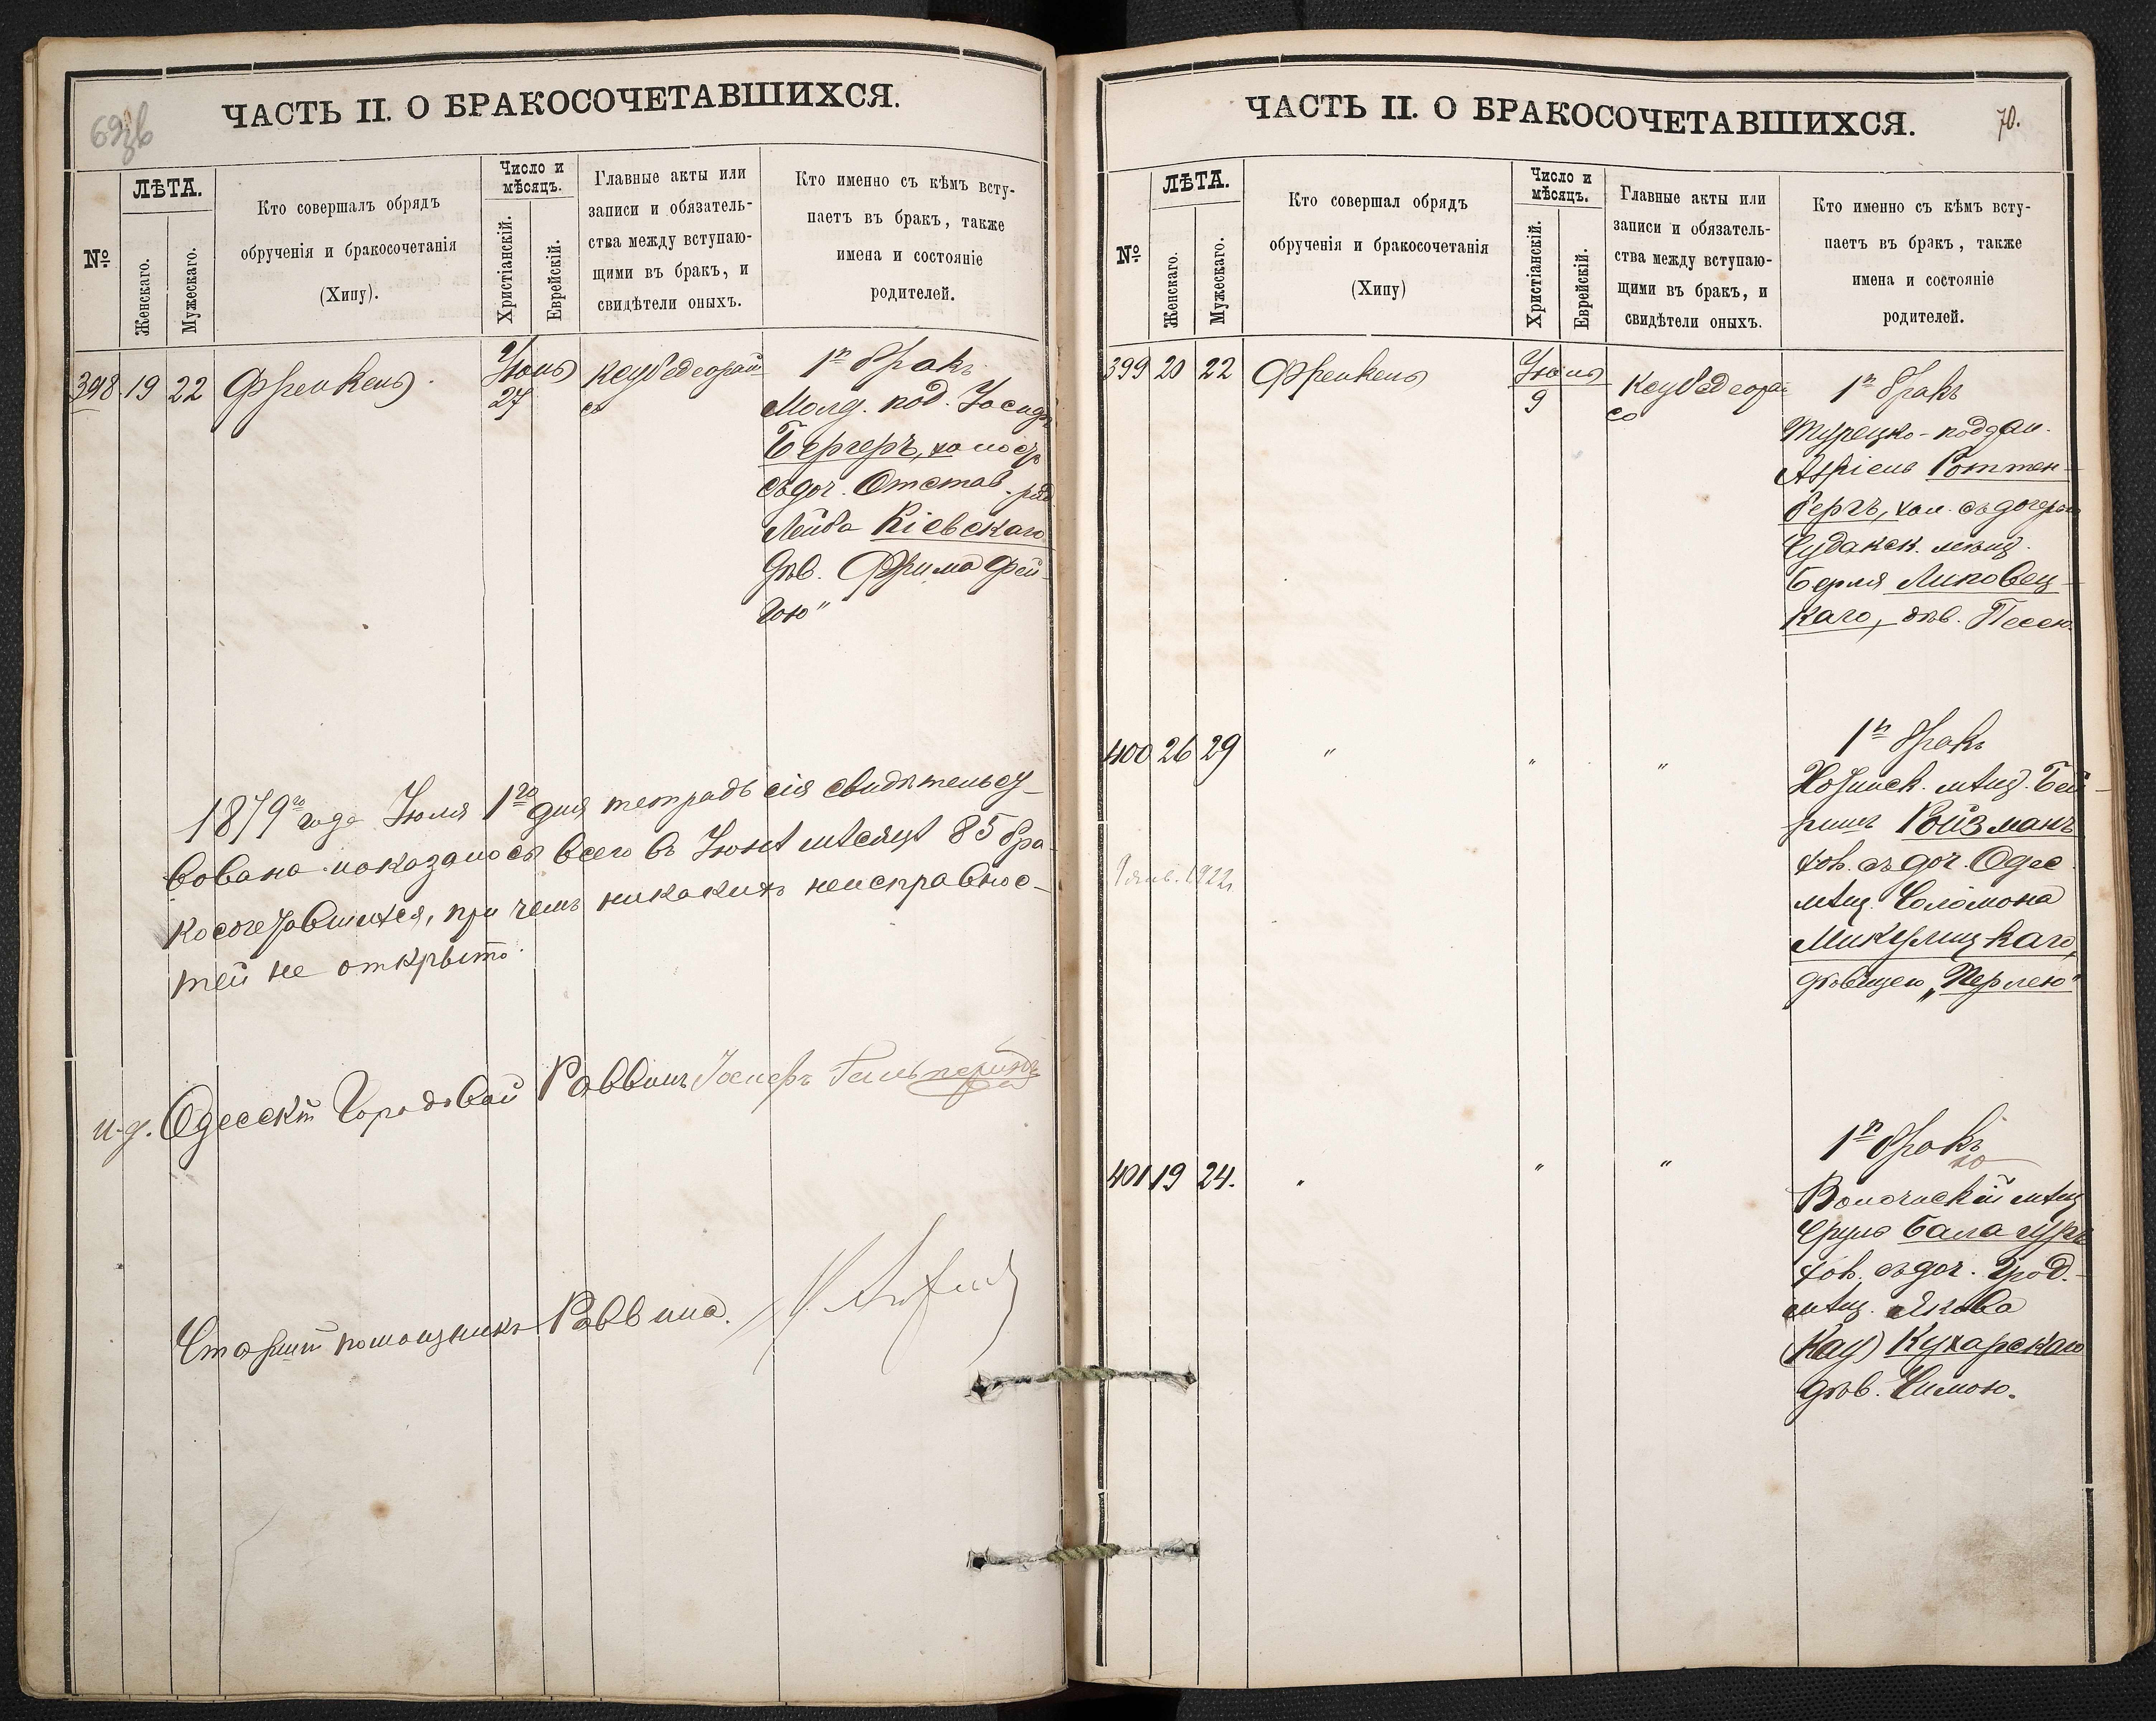 ЧАСТЬ II. О БРАКОСОЧЕТАВШИХСЯ.
№
ЛѢТА.
Женскаго.
Мужескаго.
Кто совершалъ обрядъ
обрученія и бракосочетанія
(Хипу).
Число и
мѣсяцъ.
Христіанскій.
Еврейскій.
Главные акты или
записи и обязатель-
ства между вступаю-
щими въ бракъ, и
свидѣтели оныхъ.
Кто именно съ кѣмъ всту-
паетъ въ бракъ, также
имена и состояніе
родителей.
398 19 22 Френкель
Іюнь
27
1й бракъ
Молд. под. Іосифъ
Бергеръ, холост.
съ доч. Отстав. ряд.
Лейба Кіевскаго
дѣв. Фрима Фей-
гою"
1879го года Іюля 1го дня тетрадь сія свидѣтельст-
вована показалось всего въ Іюнѣ мѣсяцѣ 85 бра-
косочетавшихся, при чемъ никакихъ неисправнос-
тей не открыто.
и.д. Одесскій Городовой Раввинъ Іосифъ Гальперинъ
Старшій помощникъ Раввина.
ЧАСТЬ II. О БРАКОСОЧЕТАВШИХСЯ.
70.
№
ЛѢТА.
Женскаго.
Мужескаго.
Кто совершал обрядъ
обрученія и бракосочетанія
(Хипу)
Число и
мѣсяцъ.
Христіанскій.
Еврейскій.
Главные акты или
записи и обязатель-
ства между вступаю-
щими въ бракъ, и
свидѣтели оныхъ.
Кто именно съ кѣмъ всту-
паетъ въ бракъ, также
имена и состояніе
родителей.
399 20 22 Френкель
Іюнь
9
1й бракъ
Турецко-поддан.
Роттен-
бергъ, хол. съ дочерью
мѣщ.
Берля Липовец-
каго, дѣв. Песею.
400 26 29 " " "
1й бракъ
мѣщ. Бей-
ришъ Ройзманъ
хол. съ доч. Одес.
мѣщ. Соломона
Микулицкаго,
дѣвицею „Перлею"
401 19 24. " " "
1й бракъ
мѣщ.
Сруль Балагуръ
хол. съ доч. Град.
мѣщ. Якова
Кухарскаго
дѣв. Симою.